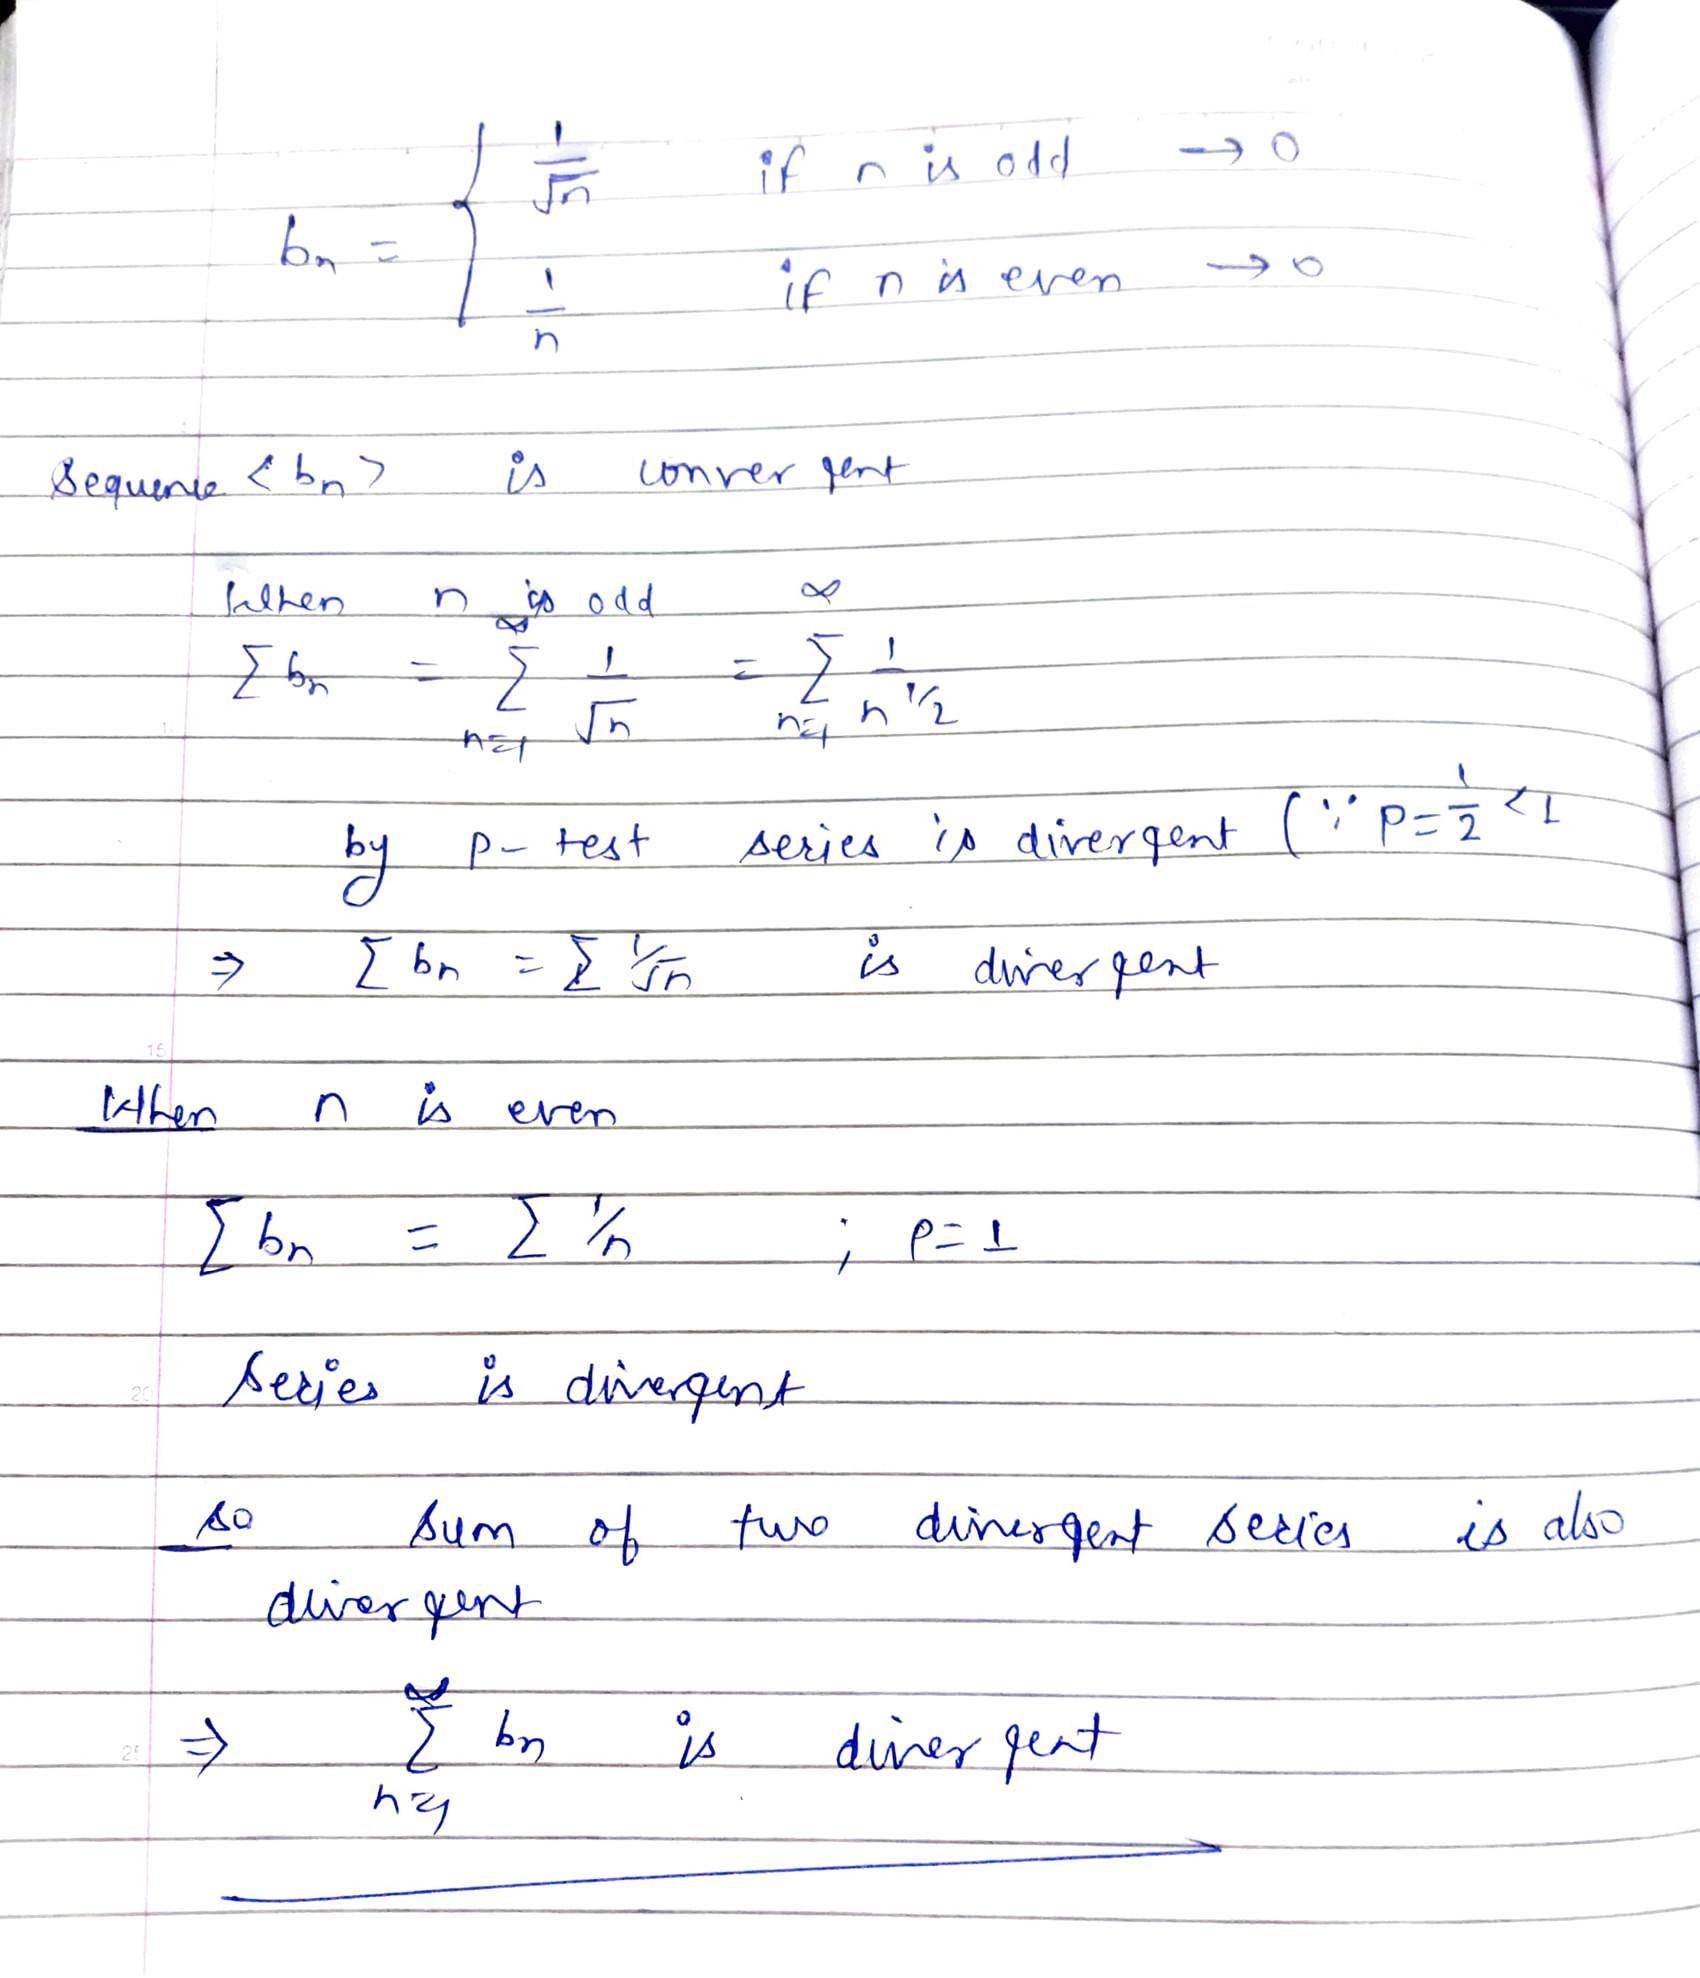 bn = { 1/√n if n is odd → 0
1/n if n is even → 0
Sequence <bn> is convergent
When n is odd
Σ bn = ∞ Σ n=1 1/√n = ∞ Σ n=1 1/n^1/2
by p-test series is divergent (∵ p=1/2 <1
⇒ Σ bn = Σ 1/√n is divergent
15
When n is even
Σ bn = Σ 1/n ; p=1
20 Series is divergent
so sum of two divergent series is also
divergent
25 ⇒ ∞ Σ n=1 bn is divergent